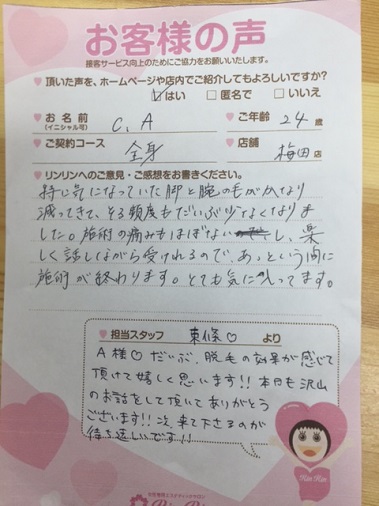 お客様の声
接客サービス向上のためにご協力をお願いいたします。
頂いた声を、ホームページや店内でご紹介してもよろしいですか?
はい □匿名で □いいえ
お名前 C.A ご年齢 24歳
(イニシャル可)
ご契約コース 全身 店舗 梅田店
リンリンへのご意見・ご感想をお書きください。
特に気になっていた脚と腕の毛がかなり
減ってきて、そる頻度もだいぶ少なくなりま
した。施術の痛みもほぼないし、楽
しく話しながら受けれるので、あっという間に
施術が終わります。とても気に入ってます。
担当スタッフ 東條♡ より
A様♡だいぶ、脱毛の効果が感じて
頂けて嬉しく思います!!本日も沢山
のお話をして頂いてありがとう
ございます!!次、来て下さるのが
待ち遠しいです!!
Rin Rin